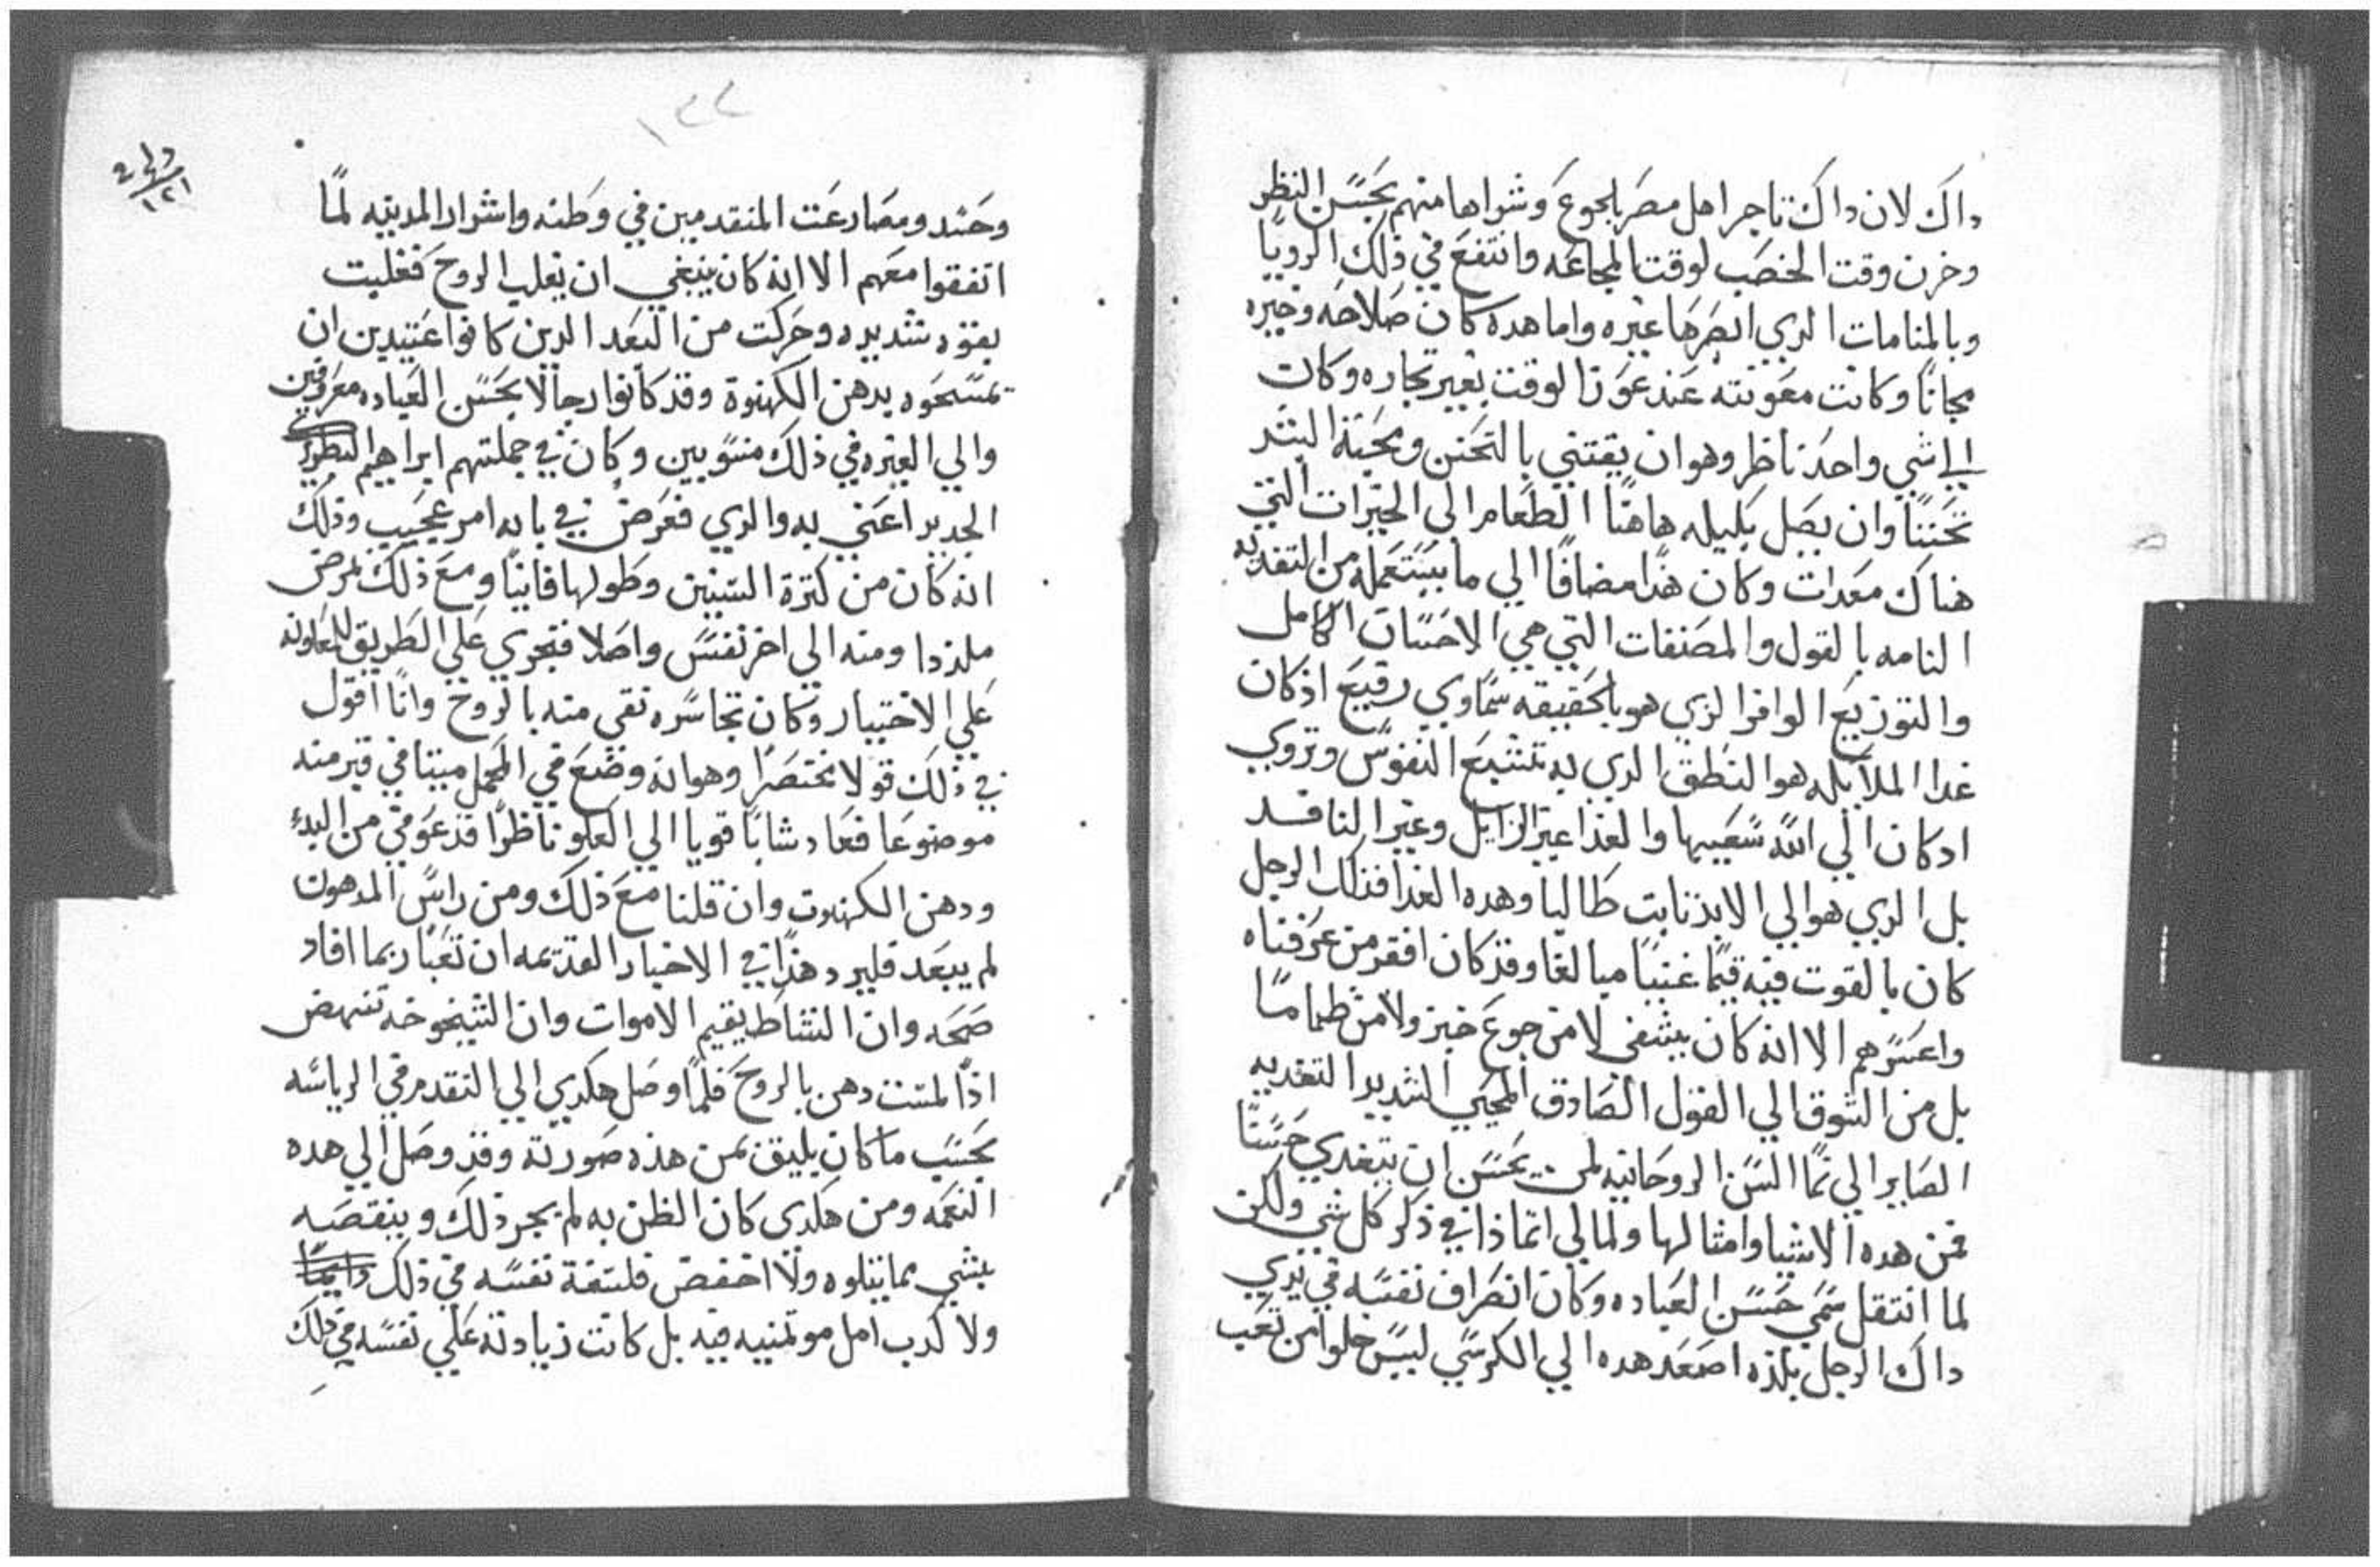 داك لان داك تاجر اهل مصر بلجوع وشراها منهم بحسن النظر
وخزن وقت الخصب لوقت المجاعه وانتفع في ذلك الرويا
وبالمنامات الدي ابصرها غيره واما هده كان صلاحه وخيره
مجانًا وكانت معونته عند عوز الوقت بغير تجاره وكان
الي شي واحد ناظر وهو ان يقتني بالتحنن ومحبة البشر
تحننًا وان يصل بكيله هاهنا الطعام الي الخيرات التي
هناك معدات وكان هذا مضافًا الي ما يستعمله من التغديه
التامه بالقول والمصنفات التي هي الاحسان الكامل
والتوزيع الوافر الزي هو بالحقيقه سماوي رفيع اذ كان
غدا الملايكه هو النطق الدي به تشبع النفوس وتروي
ادكان الي الله شغبها والغذا غير الزايل وغير النافد
بل الدي هو الي الابد ثابت طالبا وهده الغدا فداك الرجل
كان بالقوت فيه قيمًا غنيًا مبالغا وقد كان افقر من عرفناه
واعسرهم الا انه كان يشفي لا من جوع خبز ولا من ظما ما
بل من الشوق الي القول الصادق المحيي الشديد التغديه
الصاير الي نما السن الروحانيه لمن يحسن ان يتغدي حسنًا
فمن هده الاشيا وامثالها ولما لي اتمادا في ذكر كل شي ولكن
لما انتقل سمي حسن العباده وكان انصراف نفسه في يدي
داك الرجل بلذه اصعد هده الي الكرسي ليس خلوا من تعب
١٢٢
وحسد ومصارعت المتقدمين في وطنه واشرار المدينه لمًا
اتفقوا معهم الا انه كان ينبغي ان يغلب الروح فغلبت
بقوه شديده وحركت من البعد الدين كانوا عتيدين ان
يمسحوه بدهن الكهنوة وقد كانوا رجالا بحسن العباده معروفين
والي الغيره في ذلك منسوبين وكان في جملتهم ابراهيم البطريرك
الجديد اعني به والدي فعرض في بابه امر عجيب وذلك
انه كان من كترة السنين وطولها فانيًا ومع ذلك بمرض
ملزدا ومنه الي اخر نفس واصلا فتجري علي الطريق للمعاونه
علي الاختيار وكان تجاسره تقي منه بالروح وانا اقول
في ذلك قولا مختصرا وهو انه وضع في المحمل ميتا في قبر منه
موضوعا فعاد شابًا قويا الي العلو ناظرًا قد عوفي من اليد
ودهن الكهنوت وان قلنا مع ذلك ومن راس المدهون
لم يبعد فليرد هذا في الاخبار القديمه ان تعبًا ربما افاد
صحه وان النشاط يقيم الاموات وان الشيخوخه تنهض
اذا لمست دهن بالروح فلمًا وصل هكدي الي التقدم في الرياسه
بحسب ما كان يليق بمن هذه صورته وقد وصل الي هده
النعمه ومن هكدى كان الظن به لم يجر ذلك وينقصه
بشي مما يتلوه ولا اخفض فلسفة نفسه في ذلك
ولا كدب امل موتمنيه فيه بل كانت زيادته علي نفسه في ذلك